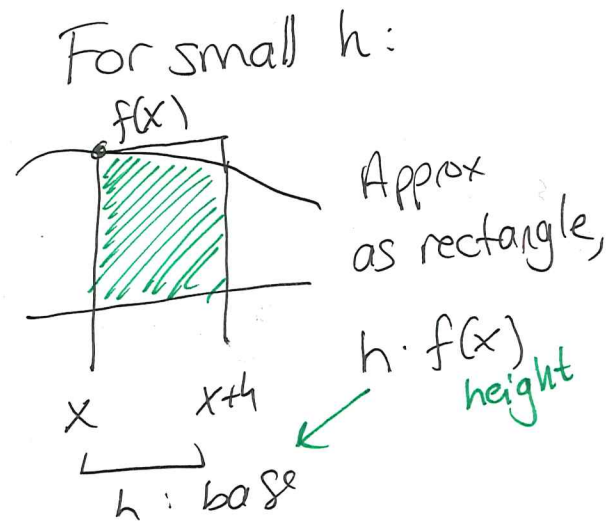 For small h:
f(x)
Approx
as rectangle,
h · f(x)
height
x x+h
h : base